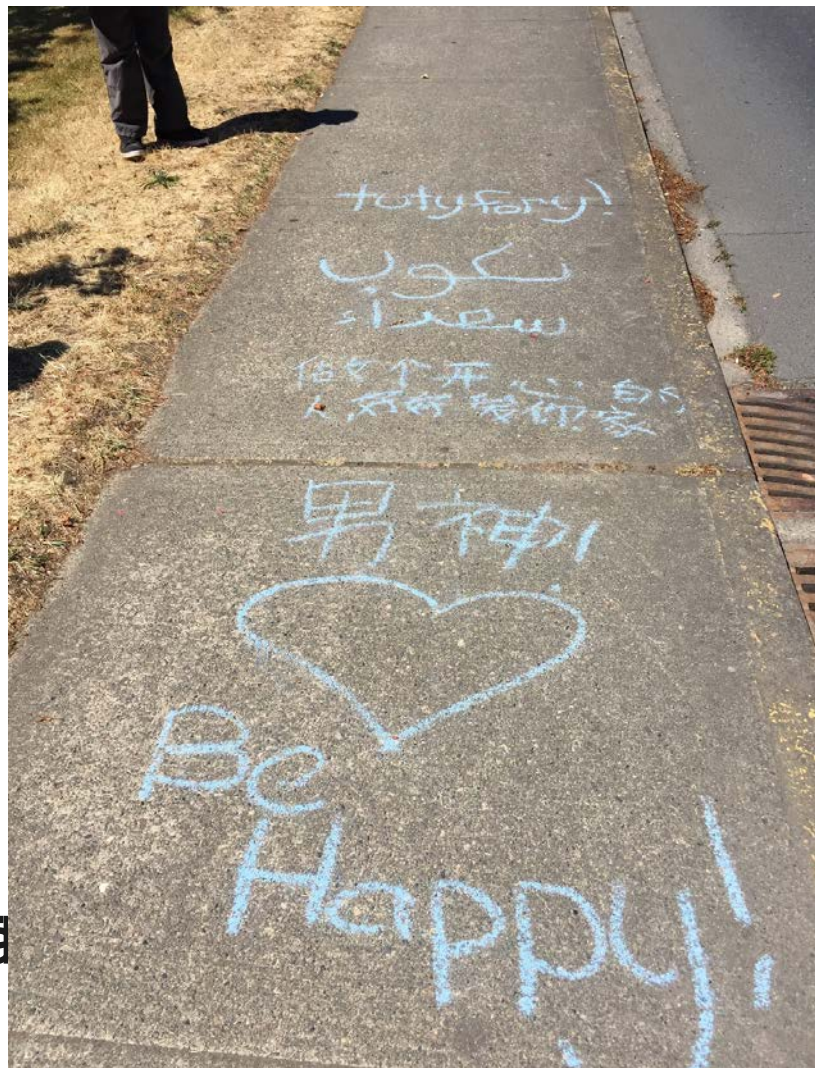 tutyfory!
نكوب
سعداء
个开心的
人,好好爱你!家
男神!
Be
Happy!